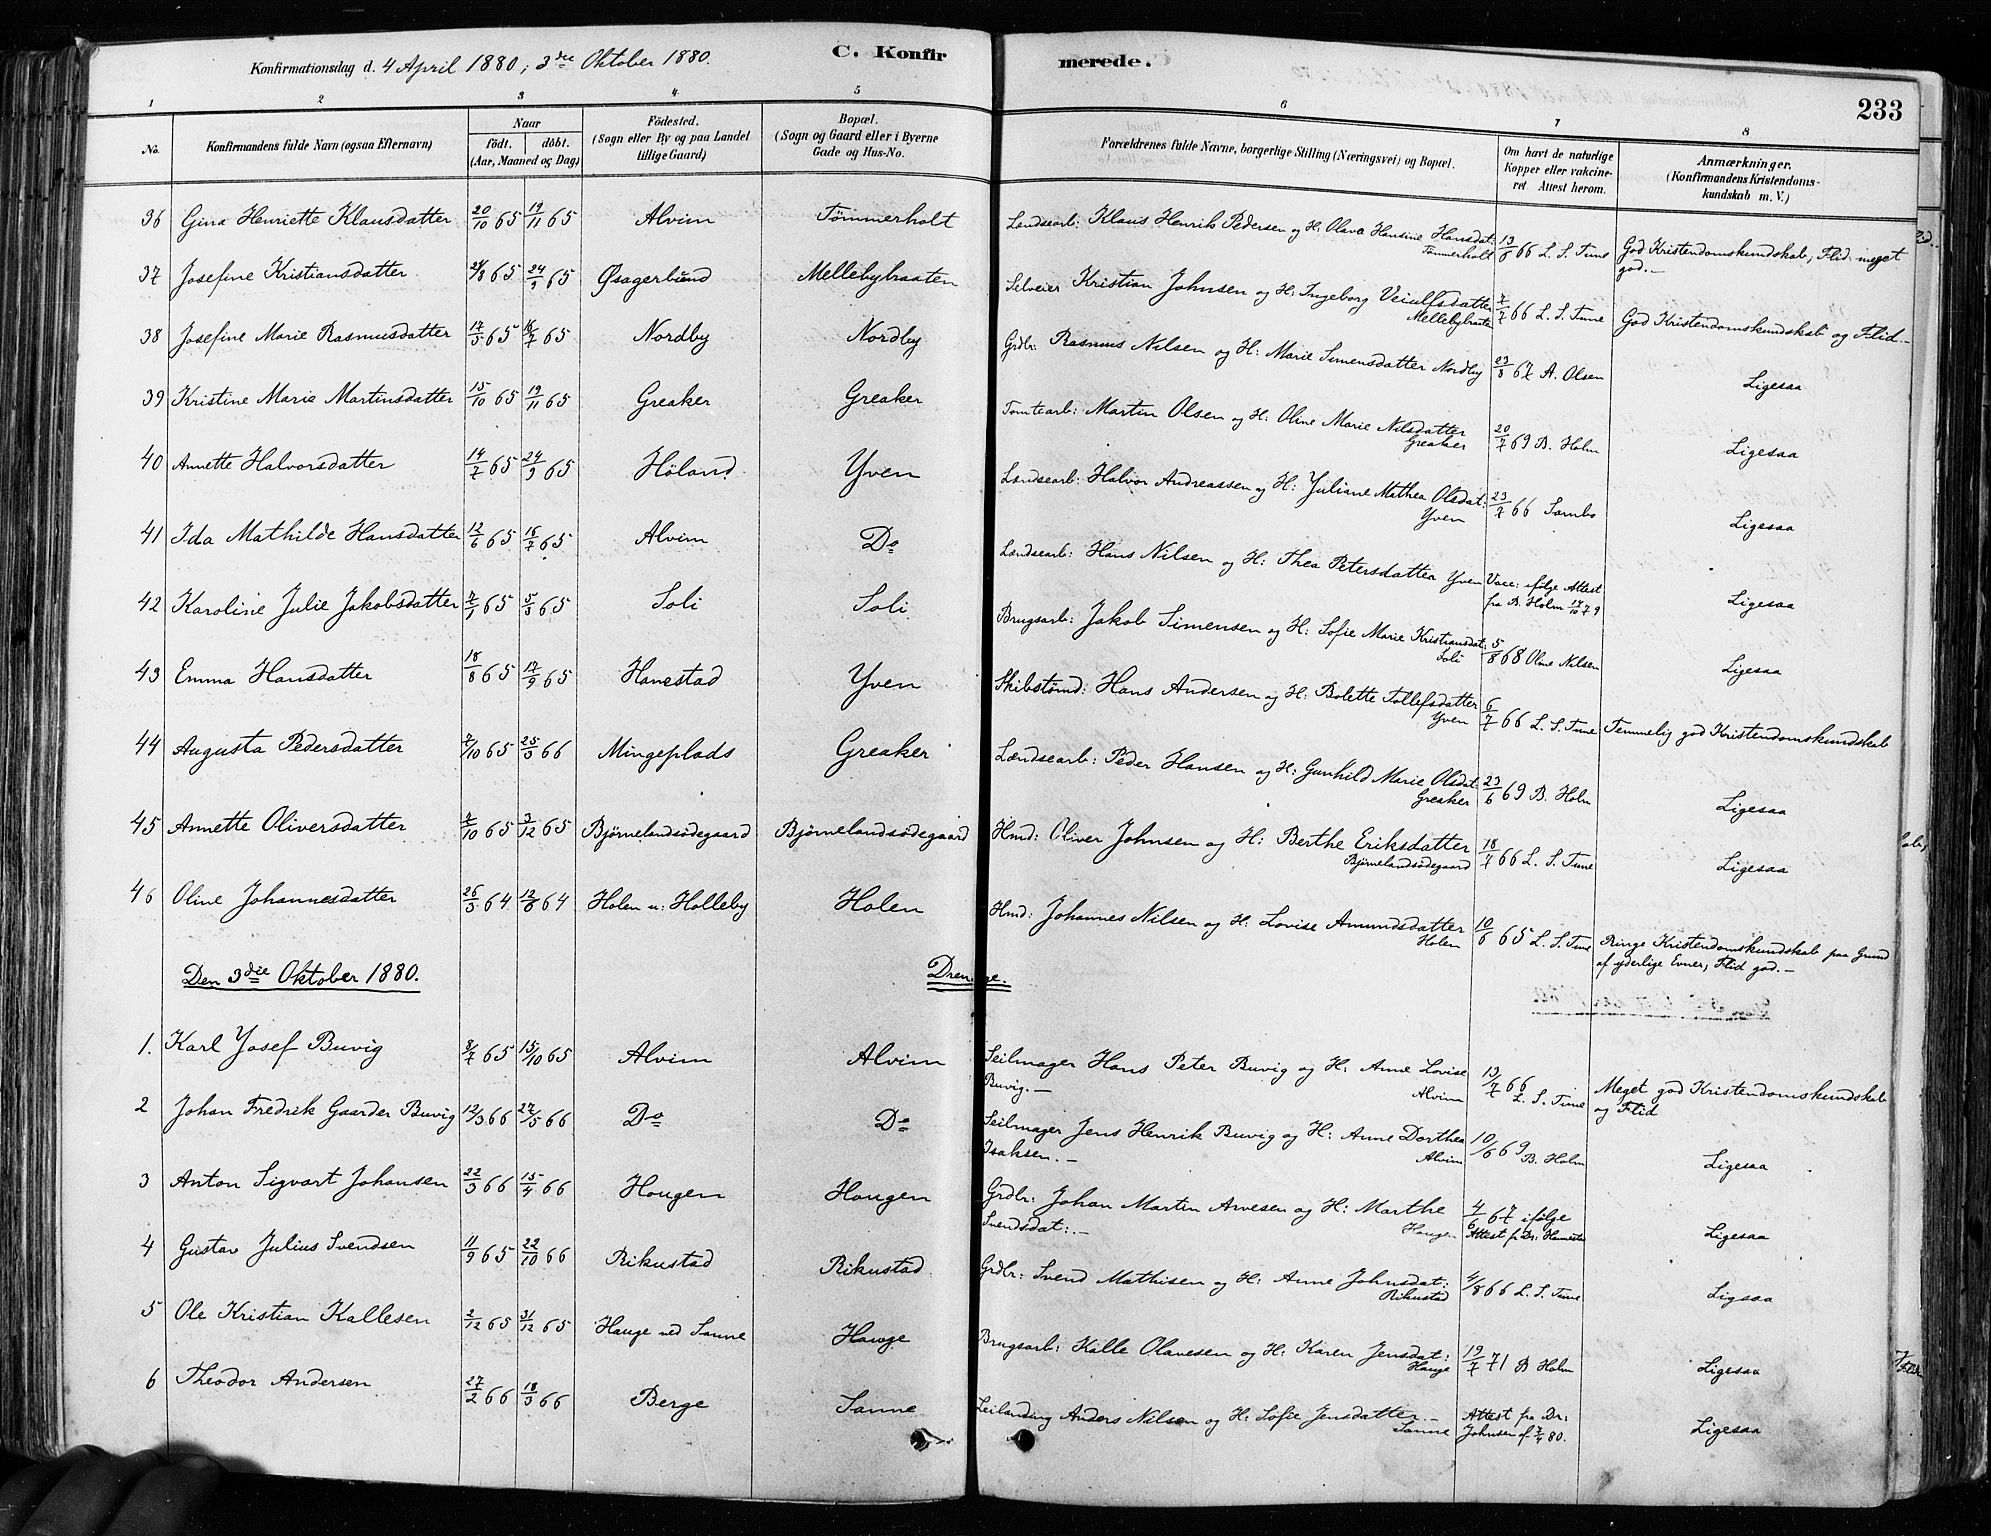 Konfirmationsdag d. 4 April 1880; 3die Oktober 1880. C. Konfir merede. 233
1 2 3 4 5 6 7 8
No. Konfirmandens fulde Navn (ogsaa Efternavn) Naar födt. döbt. (Aar, Maaned og Dag) Födested. (Sogn eller By og paa Landet tillige Gaard) Bopæl. (Sogn og Gaard eller i Byerne Gade og Hus-No. Forældrenes fulde Navne, borgerlige Stilling (Næringsvei) og Bopæl. Om havt de naturlige Kopper eller vakcineret Attest herom. Anmærkninger. (Konfirmandens Kristendomskundskab m. V.)
36 Gina Henriette Klausdatter 20/10 65 19/11 65 Alvim Tømmerholt Lændsearb: Klaus Henrik Pedersen og H: Olava Hansine Hansdat: Tømmerholt 13/8 66 L. S. Tune God Kristendomskundskab, Flid meget god.—
37 Josefine Kristiansdatter 65 24/9 65 Øsagerbund Mellebybraaten Selveier Kristian Johnsen og H: Ingeborg Veiulfsdatter Mellebybraaten 7/7 66 L. S. Tune God Kristendomskundskab og Flid.—
38 Josefine Marie Rasmusdatter 17/5 65 16/7 65 Nordby Nordby Grdbr: Rasmus Nilsen og H: Marie Simensdatter Nordby 23/8 67 A. Olsen Ligesaa
39 Kristine Marie Martinsdatter 15/10 65 19/11 65 Greaker Greaker Tomtearb: Martin Olsen og H: Oline Marie Nilsdatter Greaker 20/7 69 B. Holm Ligesaa
40 Annette Halvorsdatter 14/7 65 24/9 65 Høland Yven Lændsearb: Halvor Andreassen og H: Juliane Mathea Olsdat: Yven 23/7 66 Sambo Ligesaa
41 Ida Mathilde Hansdatter 12/6 65 16/7 65 Alvim Do Lændsearb: Hans Nilsen og H: Thea Petersdatter Yven Vacc: ifølge Attest fra B. Holm 14/10 79 Ligesaa
42 Karoline Julie Jakobsdatter 7/1 65 5/3 65 Soli Soli Brugsarb: Jakob Simensen og H: Sofie Marie Kristiansdat: Soli 5/8 68 Olave Nilsen Ligesaa
43 Emma Hansdatter 18/8 65 17/9 65 Hanestad Yven Skibstømd: Hans Andersen og H: Bolette Tollefsdatter Yven 6/7 66 L. S. Tune Temmelig god Kristendomskundskab
44 Augusta Pedersdatter 7/10 65 25/3 66 Mingeplads Greaker Lændsearb: Peder Hansen og H: Gunhild Marie Olsdat: Greaker 23/6 69 B. Holm Ligesaa
45 Annette Oliversdatter 7/10 65 3/12 65 Bjørnelandsødegaard Bjørnelandsødegaard Hmd: Oliver Johnsen og H: Berthe Eriksdatter Bjørnelandsødegaard 18/7 66 L. S. Tune Ligesaa
46 Oline Johannesdatter 26/3 64 12/6 64 Holen u: Holleby Holen Hmd: Johannes Nilsen og H: Lovise Amundsdatter Holen 10/6 65 L. S. Tune Ringe Kristendomskundskab paa Grund af yderlige Evner, Flid god.—
Den 3die Oktober 1880. Drenge.
1. Karl Josef Buvig 8/7 65 15/10 65 Alvim Alvim Seilmager Hans Peter Buvig og H: Anne Lovise Buvig.— Alvim 13/7 66 L. S. Tune Meget god Kristendomskundskab og Flid
2 Johan Fredrik Gaarder Buvig 12/3 66 27/5 66 Do Do Seilmager Jens Henrik Buvig og H: Anne Dorthea Isaksen.— Alvim 10/6 69 B. Holm Ligesaa
3 Anton Sigvart Johansen 22/3 66 15/4 66 Haugen Haugen Grdbr: Johan Martin Arvesen og H: Marthe Svendsdat:.— Haugen 4/6 67 ifølge Attest fr Dr: Ligesaa
4 Gustav Julius Svendsen 11/9 65 22/10 66 Rikustad Rikustad Grdbr: Svend Mathisen og H: Anne Johnsdat: Rikustad 4/8 66 L. S. Tune Ligesaa
5 Ole Kristian Kallesen 2/12 65 31/12 65 Hauge ved Sanne Hauge Brugsarb: Kalle Olavesen og H: Karen Jensdat: Hauge 19/7 71 B Holm Ligesaa
6 Theodor Andersen 27/2 66 18/3 66 Berge Sanne Leilending Anders Nilsen og H: Sofie Jensdatter.— Sanne Attest fra Dr: Johnsen af 7/4 80. Ligesaa